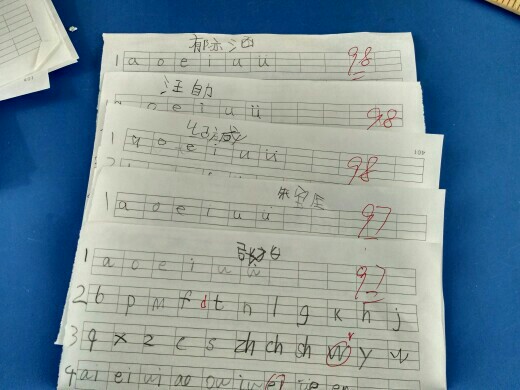 98
1 a o e i u ü
汪自力
98
o e i u ü
98
1 a o e i u ü
97
1 a o e i u ü
97
1 a o e i u ü
2 b p m f d t n l g k h j
3 q x z c s zh ch sh r y w
4 ai ei ui ao ou iu